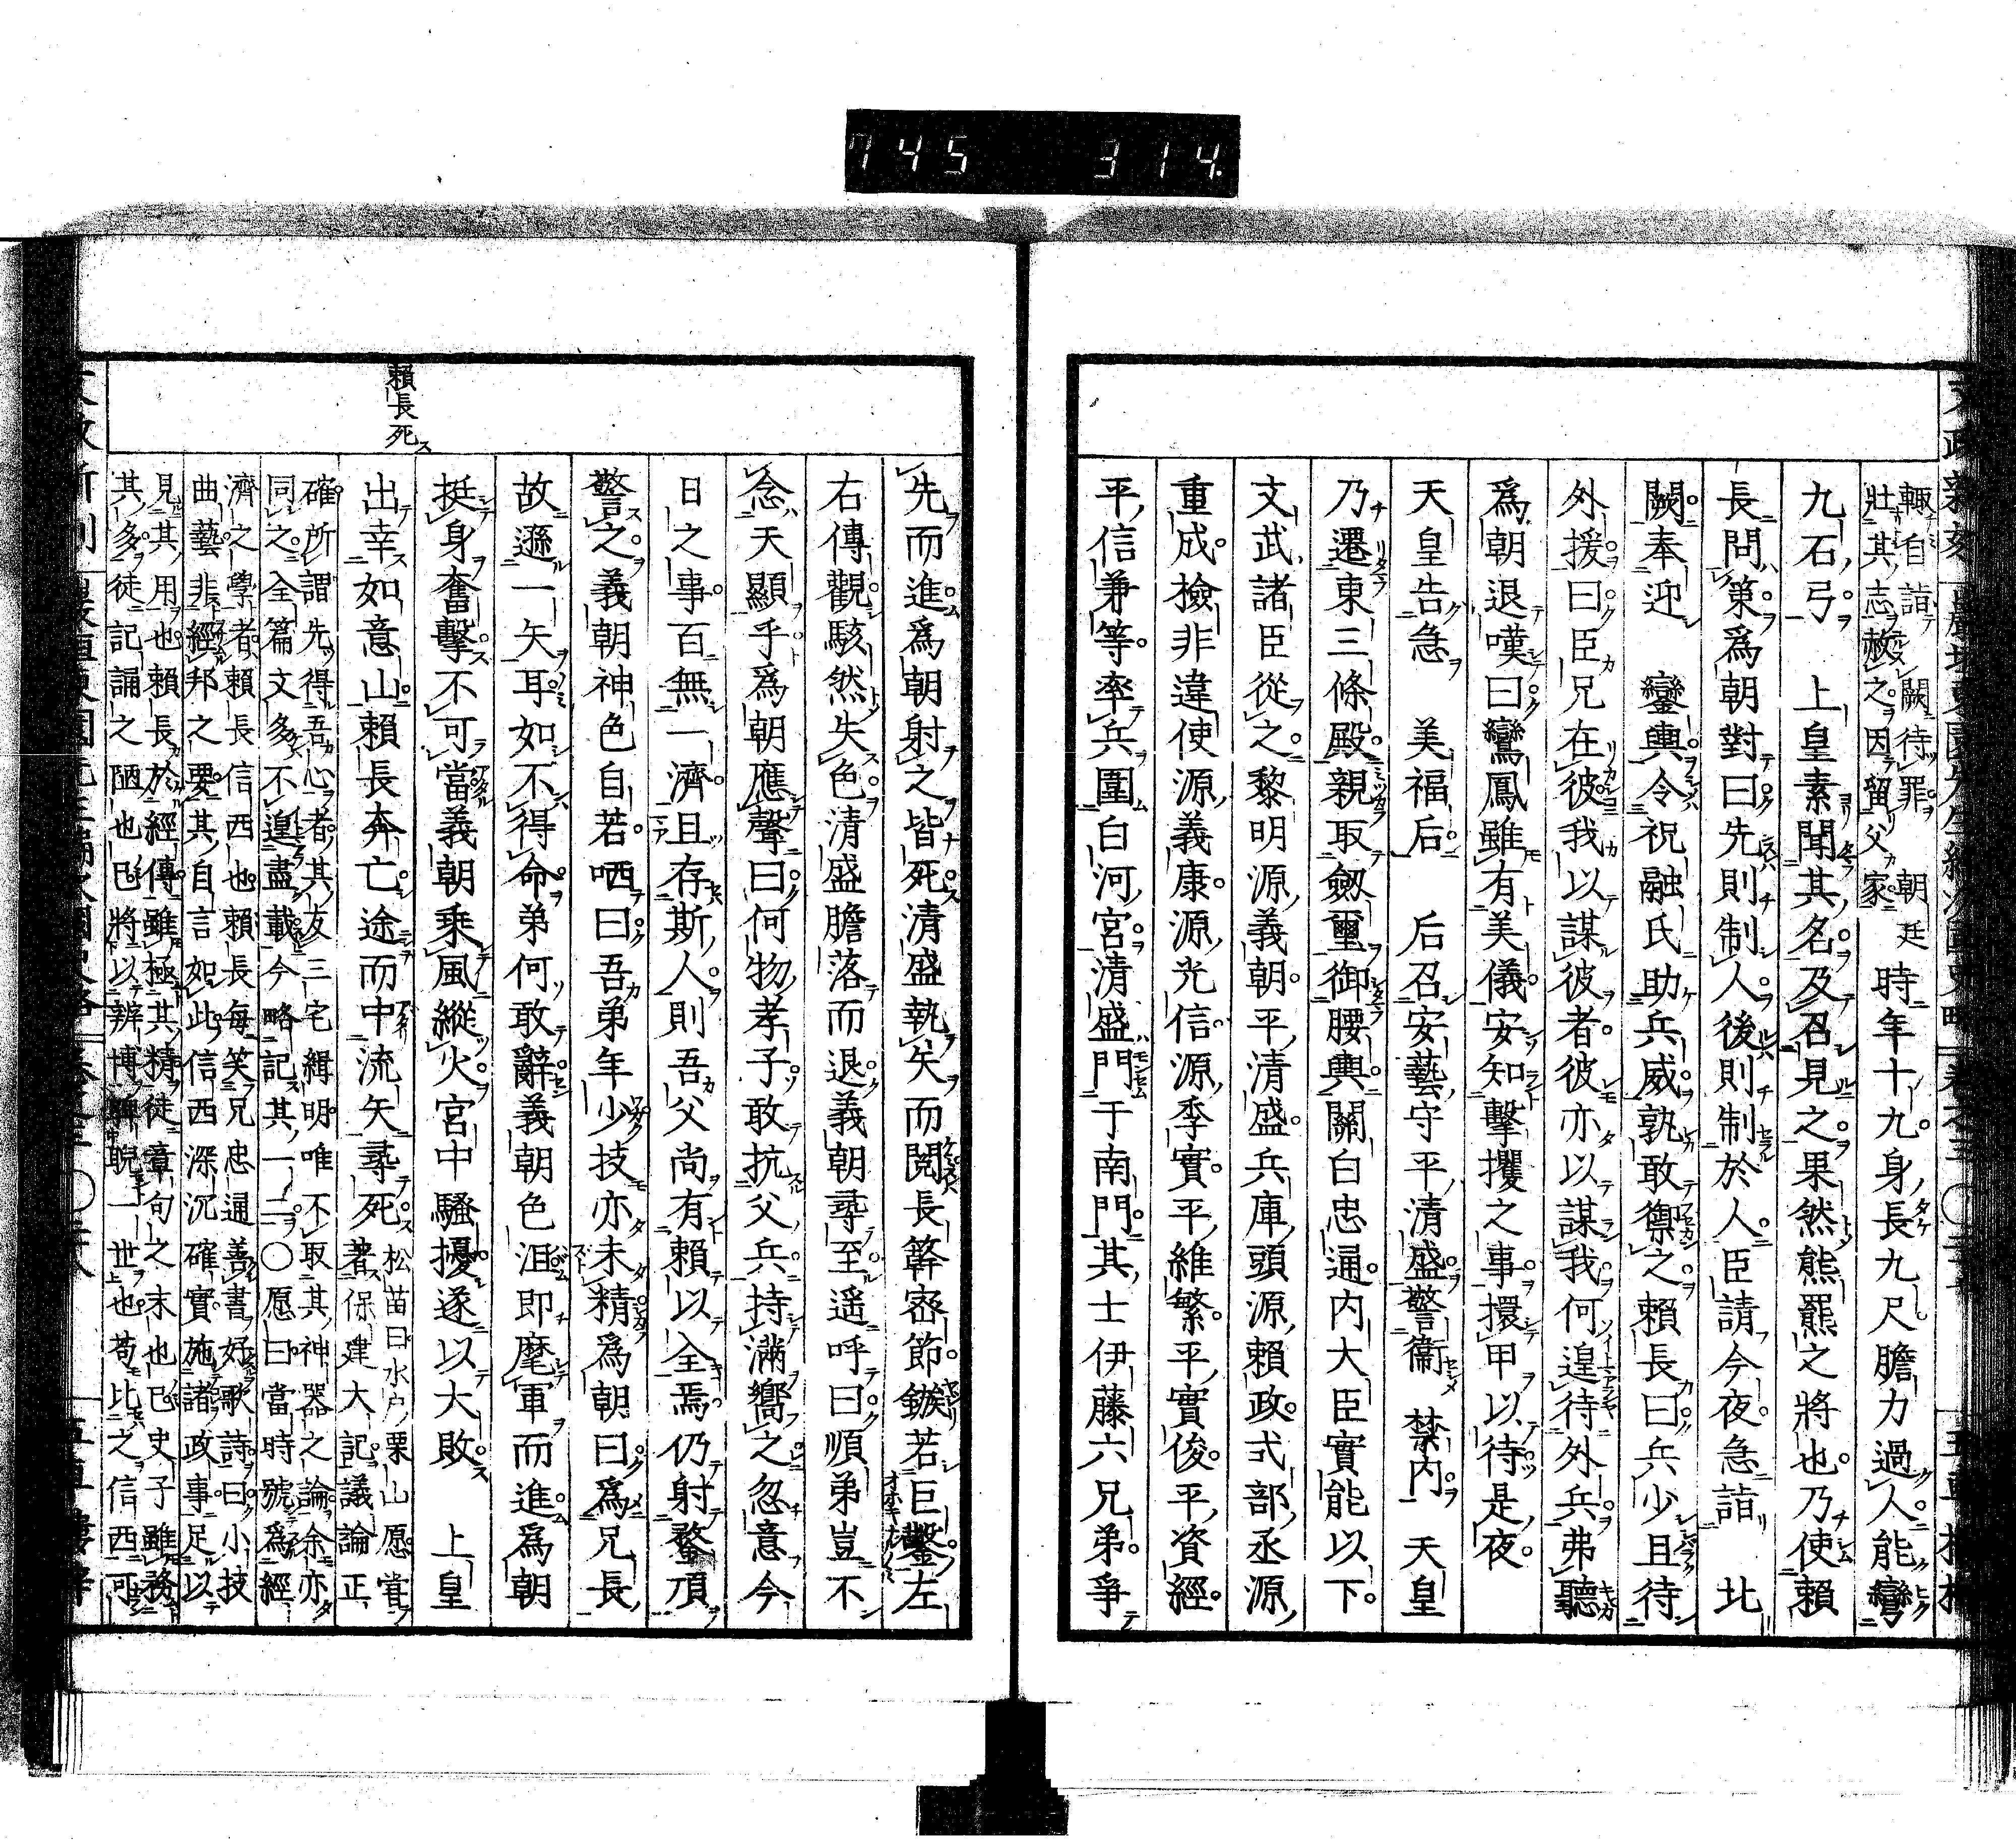 745 314
輙自詣闕待罪朝廷
壯其志赦之因留父家
時年十九身長九尺膽力過人能彎
九石弓上皇素聞其名及召見之果然熊羆之將也乃使賴
長問策爲朝對曰先則制人後則制於人臣請今夜急詣北
闕奉迎鑾輿令祝融氏助兵威孰敢禦之賴長曰兵少且待
外援曰臣兄在彼我以謀彼者彼亦以謀我何遑待外兵弗聽
爲朝退嘆曰鸞鳳雖有美儀安知擊攫之事擐甲以待是夜
天皇告急美福后后召安藝守平清盛警衞禁内天皇
乃遷東三條殿親取劔璽御腰輿關白忠通内大臣實能以下
文武諸臣從之黎明源義朝平清盛兵庫頭源賴政式部丞源
重成檢非違使源義康源光信源季實平維繁平實俊平資經
平信兼等率兵圍白河宮清盛門于南門其士伊藤六兄弟爭
先而進爲朝射之皆死清盛執矢而閱長簳密節鏃若巨鑿左
右傳觀駭然失色清盛膽落而退義朝尋至遥呼曰順弟豈不
念天顯乎爲朝應聲曰何物孝子敢抗父兵持滿嚮之忽意今
日之事百無一濟且存斯人則吾父尚有賴以全焉仍射鍪頂
警之義朝神色自若哂曰吾弟年少技亦未精爲朝曰爲兄長
故遜一矢耳如不得命弟何敢辭義朝色沮即麾軍而進爲朝
挺身奮擊不可當義朝乘風縱火宮中騷擾遂以大敗上皇
賴長死
出幸如意山賴長奔亡途而中流矢尋死
松苗曰水户栗山愿嘗
著保建大記議論正
確所謂先得吾心者其友三宅緝明唯不取其神器之論余亦
同之全篇文多不遑盡載今略記其一二〇愿曰當時號爲經
濟之學者賴長信西也賴長每笑兄忠通善書好歌詩曰小技
曲藝非經邦之要其自言如此信西深沉確實施諸政事足以
見其用也賴長於經傳雖極其精徒章句之末也已史子雖務
其多徒記誦之陋也已將以辨博睥睨一世也苟比之信西可